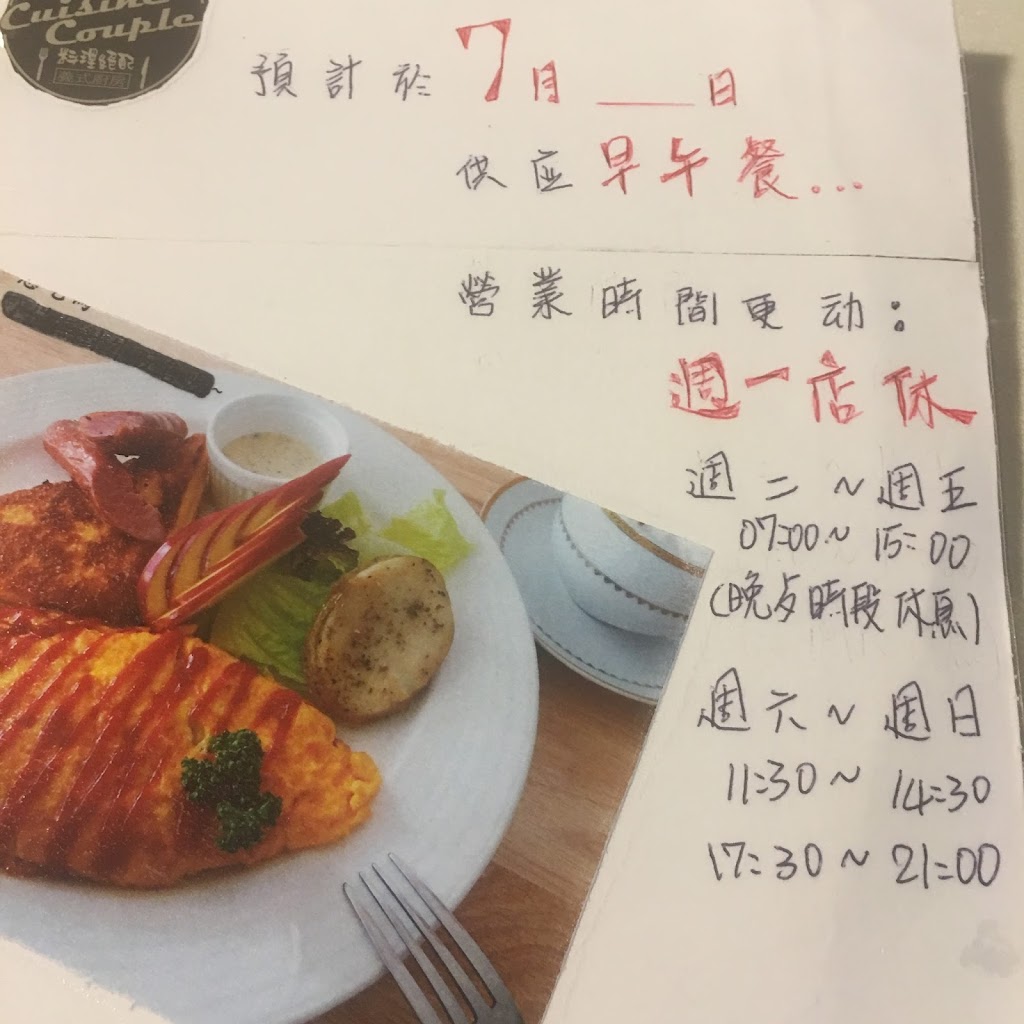 Cuisine
Couple
料理絕配
義式廚房
預計於7月___日
供应早午餐...
營業時間更动:
週一店休
週二~週五
07:00~15:00
(晚歺時段休息)
週六~週日
11:30~14:30
17:30~21:00